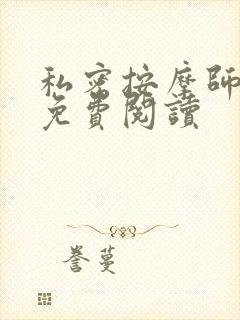 私密按摩師
免費閱讀
誉蔓